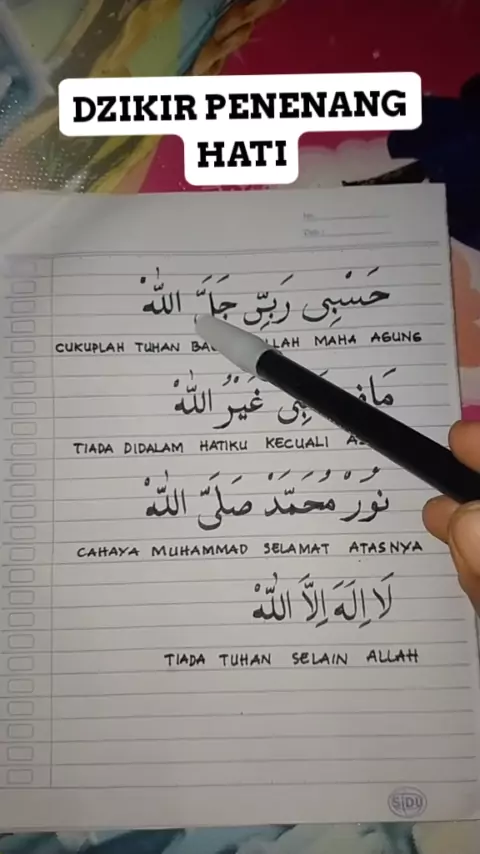 DZIKIR PENENANG
HATI
حَسْبِى رَبِّى جَلَّ اللهْ
CUKUPLAH TUHAN ALLAH MAHA AGUNG
غَيْرُ اللهْ
TIADA DIDALAM HATIKU KECUALI
نُوْرُ مُحَمَّدْ صَلَّى اللهْ
CAHAYA MUHAMMAD SELAMAT ATASNYA
لَا اِلَهَ اِلَّا اللهْ
TIADA TUHAN SELAIN ALLAH
SIDU